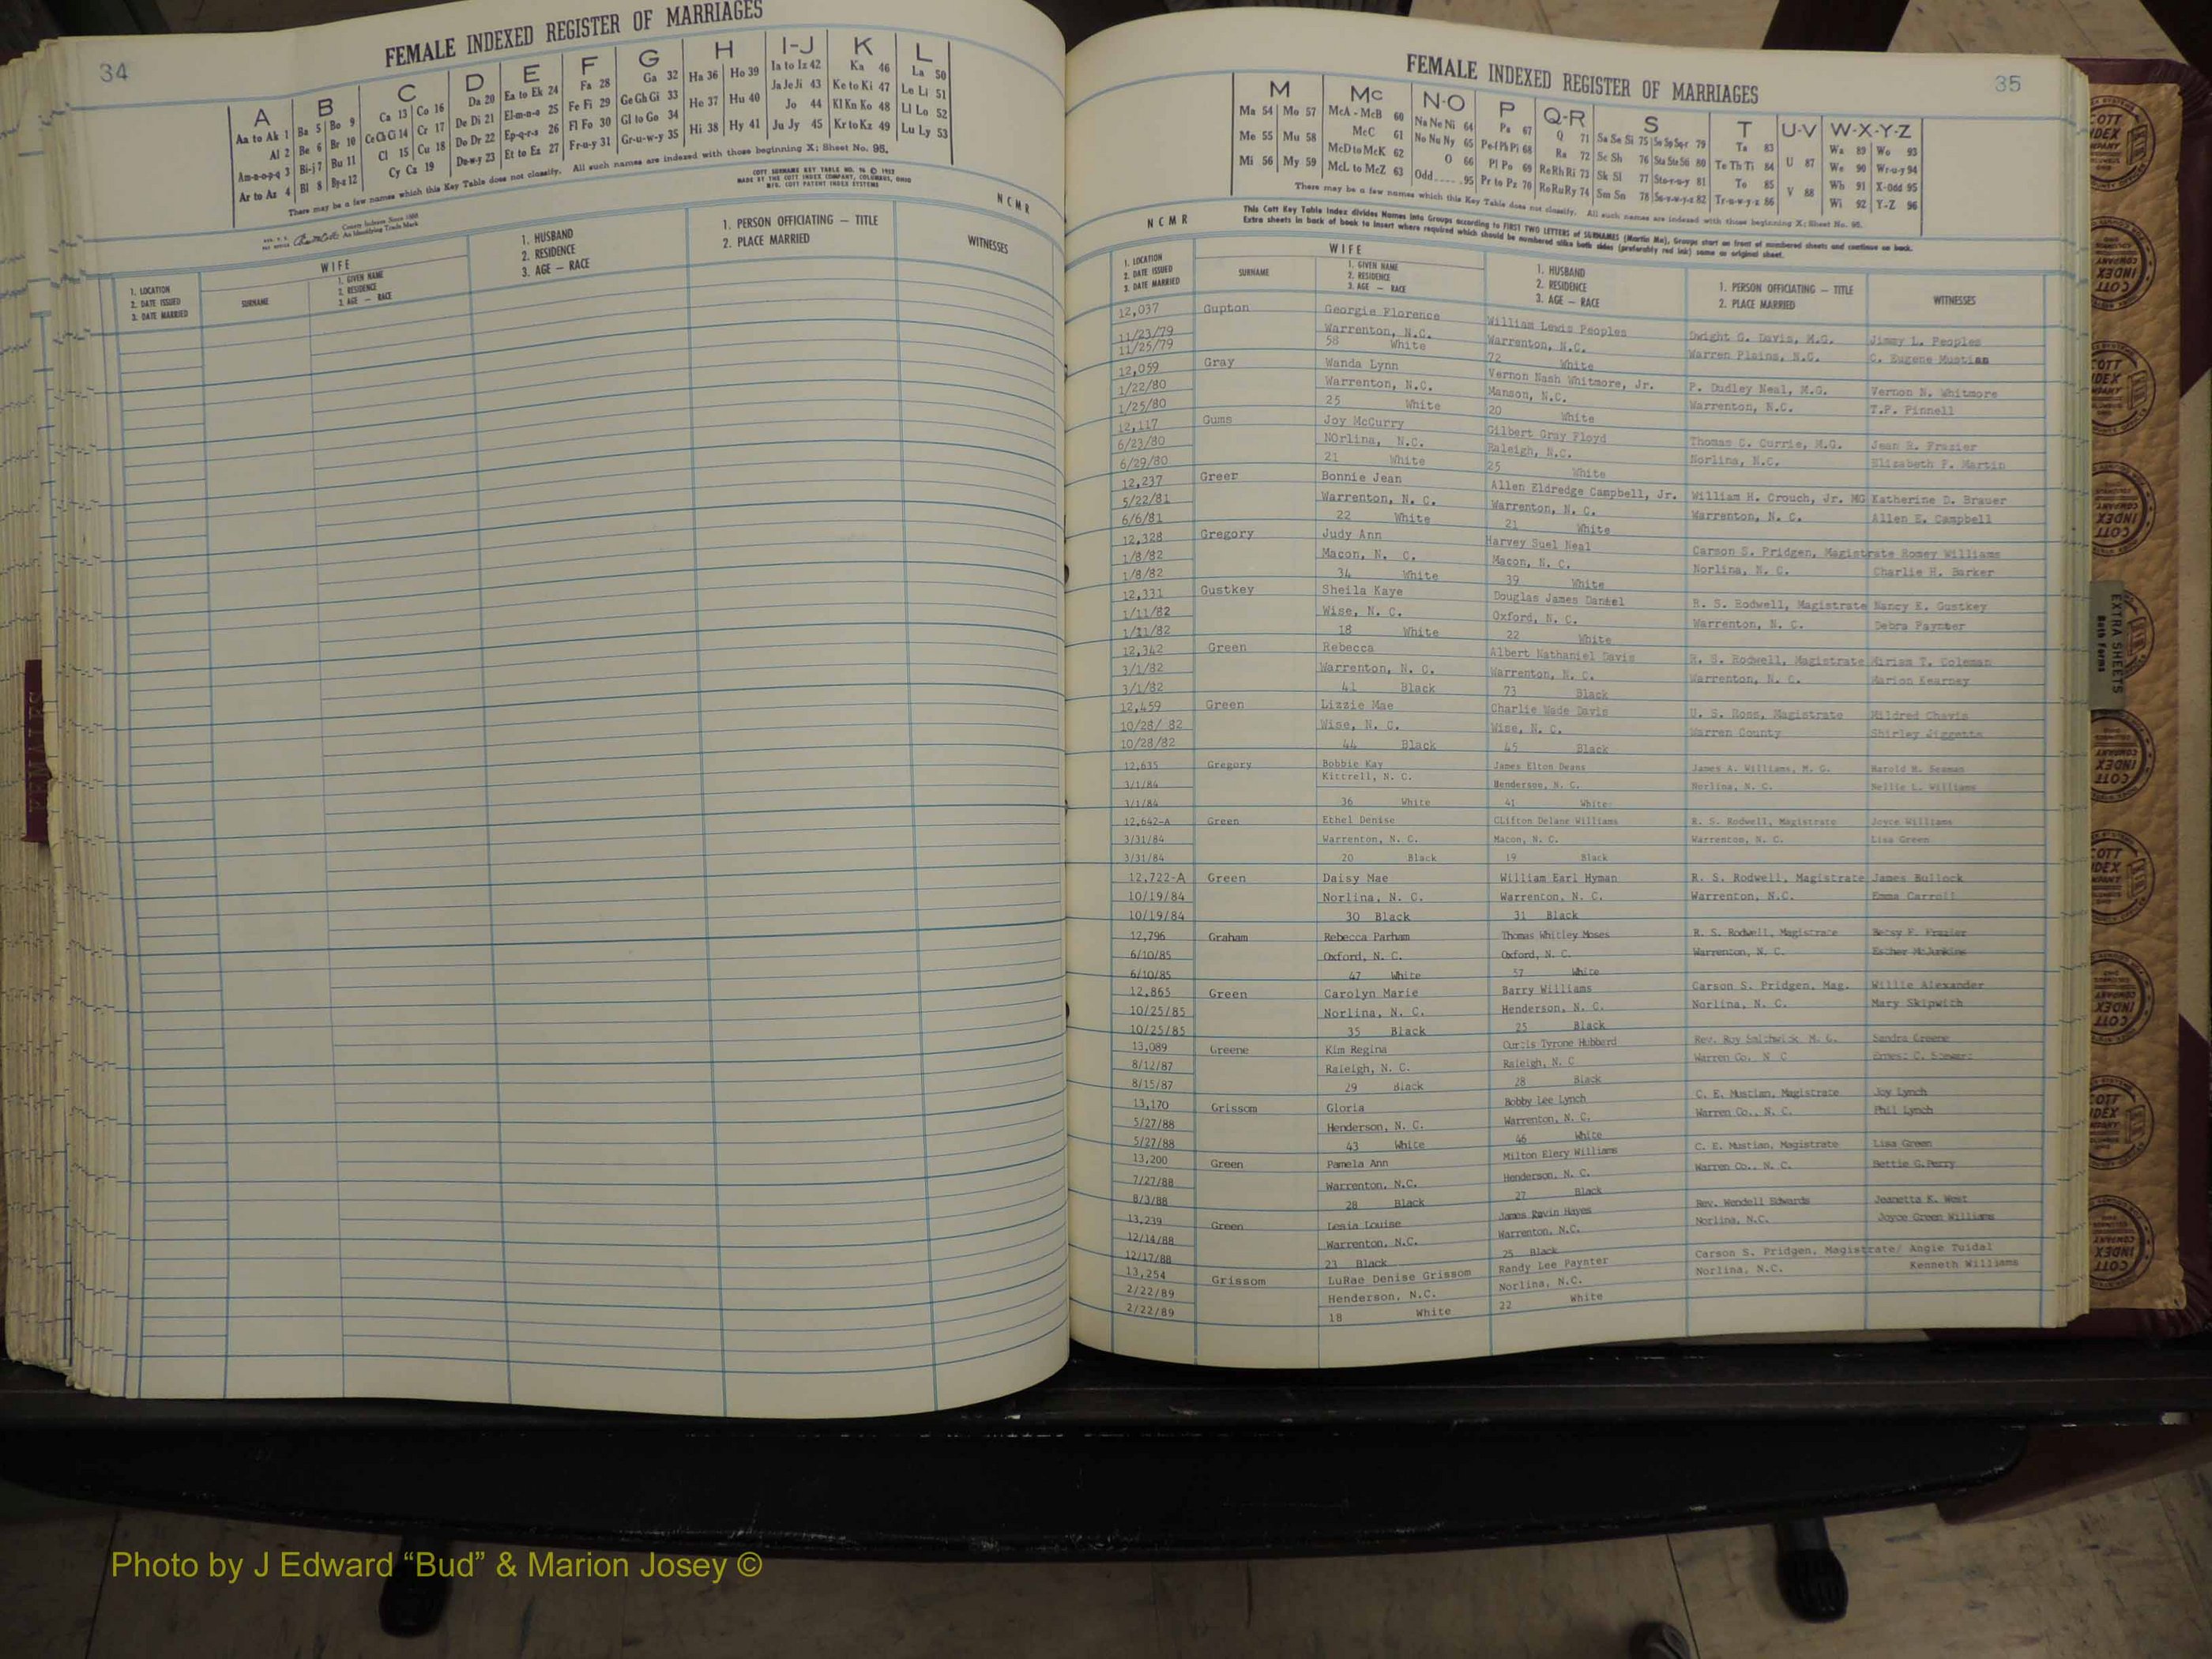 34
FEMALE INDEXED REGISTER OF MARRIAGES
A
Aa to Ak 1
Al 2
Am-n-o-p-q 3
Ar to Az 4
B
Ba 5 Bo 9
Be 6 Br 10
Bi-j 7 Bu 11
Bl 8 By-z 12
C
Ca 13 Co 16
Ce Ch Ci 14 Cr 17
Cl 15 Cu 18
Cy Cz 19
D
Da 20
De Di 21
Do Dr 22
Du-w-y 23
E
Ea to Ek 24
El-m-n-o 25
Ep-q-r-s 26
Et to Ez 27
F
Fa 28
Fe Fi 29
Fl Fo 30
Fr-u-y 31
G
Ga 32
Ge Gh Gi 33
Gl to Go 34
Gr-u-w-y 35
H
Ha 36 Ho 39
He 37 Hu 40
Hi 38 Hy 41
I-J
Ia to Iz 42
Ja Je Ji 43
Jo 44
Ju Jy 45
K
Ka 46
Ke to Ki 47
Kl Kn Ko 48
Kr to Kz 49
L
La 50
Le Li 51
Ll Lo 52
Lu Ly 53
There may be a few names which this Key Table does not classify. All such names are indexed with those beginning X; Sheet No. 95.
COTT SURNAME KEY TABLE NO.
MADE BY THE COTT INDEX COMPANY, COLUMBUS, OHIO
MFG. COTT PATENT INDEX SYSTEMS
County Indexes Since 1888
An Identifying Trade Mark
N C M R
1. LOCATION
2. DATE ISSUED
3. DATE MARRIED
WIFE
SURNAME
1. GIVEN NAME
2. RESIDENCE
3. AGE — RACE
1. HUSBAND
2. RESIDENCE
3. AGE — RACE
1. PERSON OFFICIATING — TITLE
2. PLACE MARRIED
WITNESSES
FEMALES
FEMALE INDEXED REGISTER OF MARRIAGES
35
M
Ma 54 Mo 57
Me 55 Mu 58
Mi 56 My 59
Mc
McA - McB 60
McC 61
McD to McK 62
McL to McZ 63
N-O
Na Ne Ni 64
No Nu Ny 65
O 66
Odd 95
P
Pa 67
Pe-f Ph Pi 68
Pl Po 69
Pr to Pz 70
Q-R
Q 71
Ra 72
Re Rh Ri 73
Ro Ru Ry 74
S
Sa Se Si 75 Sn Sp Sq-r 79
Sc Sh 76 Sta Ste Sti 80
Sk Sl 77 Sto-r-u-y 81
Sm Sn 78 Su-v-w-y-z 82
T
Ta 83
Te Th Ti 84
To 85
Tr-u-w-y-z 86
U-V
U 87
V 88
W-X-Y-Z
Wa 89 Wo 93
We 90 Wr-u-y 94
Wh 91 X-Odd 95
Wi 92 Y-Z 96
There may be a few names which this Key Table does not classify. All such names are indexed with those beginning X; Sheet No. 95.
This Cott Key Table Index divides Names into Groups according to FIRST TWO LETTERS of SURNAMES (Martin Ma), Groups start on front of numbered sheets and continue on back.
Extra sheets in back of book to insert where required which should be numbered alike both sides (preferably red ink) same as original sheet.
N C M R
1. LOCATION
2. DATE ISSUED
3. DATE MARRIED
WIFE
SURNAME
1. GIVEN NAME
2. RESIDENCE
3. AGE — RACE
1. HUSBAND
2. RESIDENCE
3. AGE — RACE
1. PERSON OFFICIATING — TITLE
2. PLACE MARRIED
WITNESSES
12,037 Gupton Georgie Florence William Lewis Peoples Dwight G. Davis, M.G. Jimmy L. Peoples
11/23/79 Warrenton, N.C. Warrenton, N.C. Warren Plains, N.C. C. Eugene Mustian
11/25/79 58 White 72 White
12,059 Gray Wanda Lynn Vernon Nash Whitmore, Jr. P. Dudley Neal, M.G. Vernon N. Whitmore
1/22/80 Warrenton, N.C. Manson, N.C. Warrenton, N.C. T.P. Pinnell
1/25/80 25 White 20 White
12,117 Gums Joy McCurry Gilbert Gray Floyd Thomas C. Currie, M.G. Jean R. Frazier
6/23/80 NOrlina, N.C. Raleigh, N.C. Norlina, N.C. Elizabeth F. Martin
6/29/80 21 White 25 White
12,237 Greer Bonnie Jean Allen Eldredge Campbell, Jr. William H. Crouch, Jr. MG Katherine D. Brauer
5/22/81 Warrenton, N. C. Warrenton, N. C. Warrenton, N. C. Allen E. Campbell
6/6/81 22 White 21 White
12,328 Gregory Judy Ann Harvey Suel Neal Carson S. Pridgen, Magistrate Romey Williams
1/8/82 Macon, N. C. Macon, N. C. Norlina, N. C. Charlie H. Barker
1/8/82 34 White 39 White
12,331 Gustkey Sheila Kaye Douglas James Daniel R. S. Rodwell, Magistrate Nancy K. Gustkey
1/11/82 Wise, N. C. Oxford, N. C. Warrenton, N. C. Debra Paynter
1/11/82 18 White 22 White
12,342 Green Rebecca Albert Nathaniel Davis R. S. Rodwell, Magistrate Miriam T. Coleman
3/1/82 Warrenton, N. C. Warrenton, N. C. Warrenton, N. C. Marion Kearney
3/1/82 41 Black 73 Black
12,459 Green Lizzie Mae Charlie Wade Davis U. S. Ross, Magistrate Mildred Chavis
10/28/ 82 Wise, N. C. Wise, N. C. Warren County Shirley Jiggetts
10/28/82 44 Black 45 Black
12,635 Gregory Bobbie Kay James Elton Deans James A. Williams, M. G. Harold M. Seaman
3/1/84 Kittrell, N. C. Henderson, N. C. Norlina, N. C. Nellie L. Williams
3/1/84 36 White 41 White
12,642-A Green Ethel Denise CLifton Delane Williams R. S. Rodwell, Magistrate Joyce Williams
3/31/84 Warrenton, N. C. Macon, N. C. Warrenton, N. C. Lisa Green
3/31/84 20 Black 19 Black
12,722-A Green Daisy Mae William Earl Hyman R. S. Rodwell, Magistrate James Bullock
10/19/84 Norlina, N. C. Warrenton, N. C. Warrenton, N.C. Emma Carroll
10/19/84 30 Black 31 Black
12,796 Graham Rebecca Parham Thomas Whitley Moses R. S. Rodwell, Magistrate Betsy F. Frazier
6/10/85 Oxford, N. C. Oxford, N. C. Warrenton, N. C. Esther McJunkins
6/10/85 47 White 57 White
12,865 Green Carolyn Marie Barry Williams Carson S. Pridgen, Mag. Willie Alexander
10/25/85 Norlina, N. C. Henderson, N. C. Norlina, N. C. Mary Skipwith
10/25/85 35 Black 25 Black
13,089 Greene Kim Regina Curtis Tyrone Hubbard Rev. Roy M. G. Sandra Greene
8/12/87 Raleigh, N. C. Raleigh, N. C Warren Co. N C Ernest C. Stewart
8/15/87 29 Black 28 Black
13,170 Grissom Gloria Bobby Lee Lynch C. E. Mustian, Magistrate Joy Lynch
5/27/88 Henderson, N. C. Warrenton, N. C. Warren Co., N. C. Phil Lynch
5/27/88 43 White 46 White
13,200 Green Pamela Ann Milton Elery Williams C. E. Mustian, Magistrate Lisa Green
7/27/88 Warrenton, N.C. Henderson, N. C. Warren Co., N. C. Bettie G. Perry
8/3/88 28 Black 27 Black
13,239 Green Lesia Louise James Hayes Rev. Wendell Edwards Jeanetta K. West
12/14/88 Warrenton, N.C. Warrenton, N.C. Norlina, N.C. Joyce Green Williams
12/17/88 23 Black 25 Black
13,254 Grissom LuRae Denise Grissom Randy Lee Paynter Carson S. Pridgen, Magistrate/ Angie Tuidal
2/22/89 Henderson, N.C. Norlina, N.C. Norlina, N.C. Kenneth Williams
2/22/89 18 White 22 White
EXTRA SHEETS
Both Forms
Photo by J Edward “Bud” & Marion Josey ©